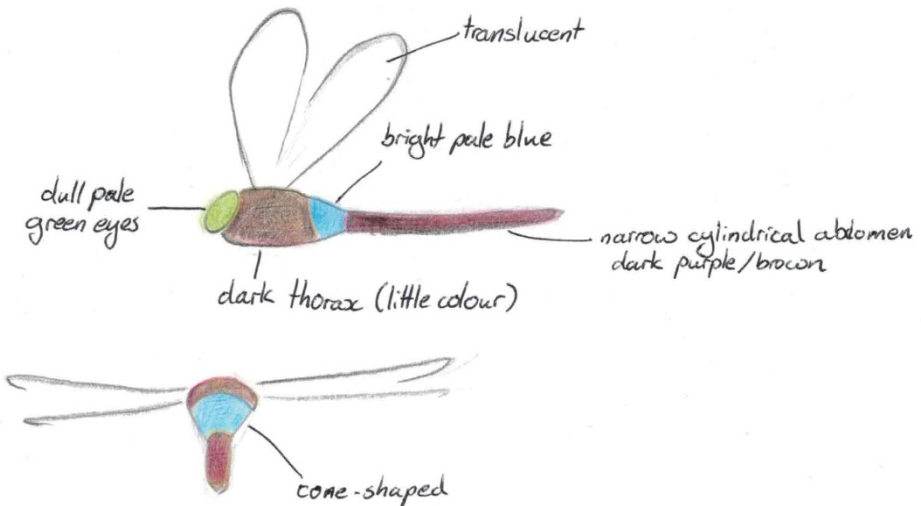 translucent
bright pale blue
dull pale
green eyes
narrow cylindrical abdomen
dark purple/brown
dark thorax (little colour)
cone-shaped